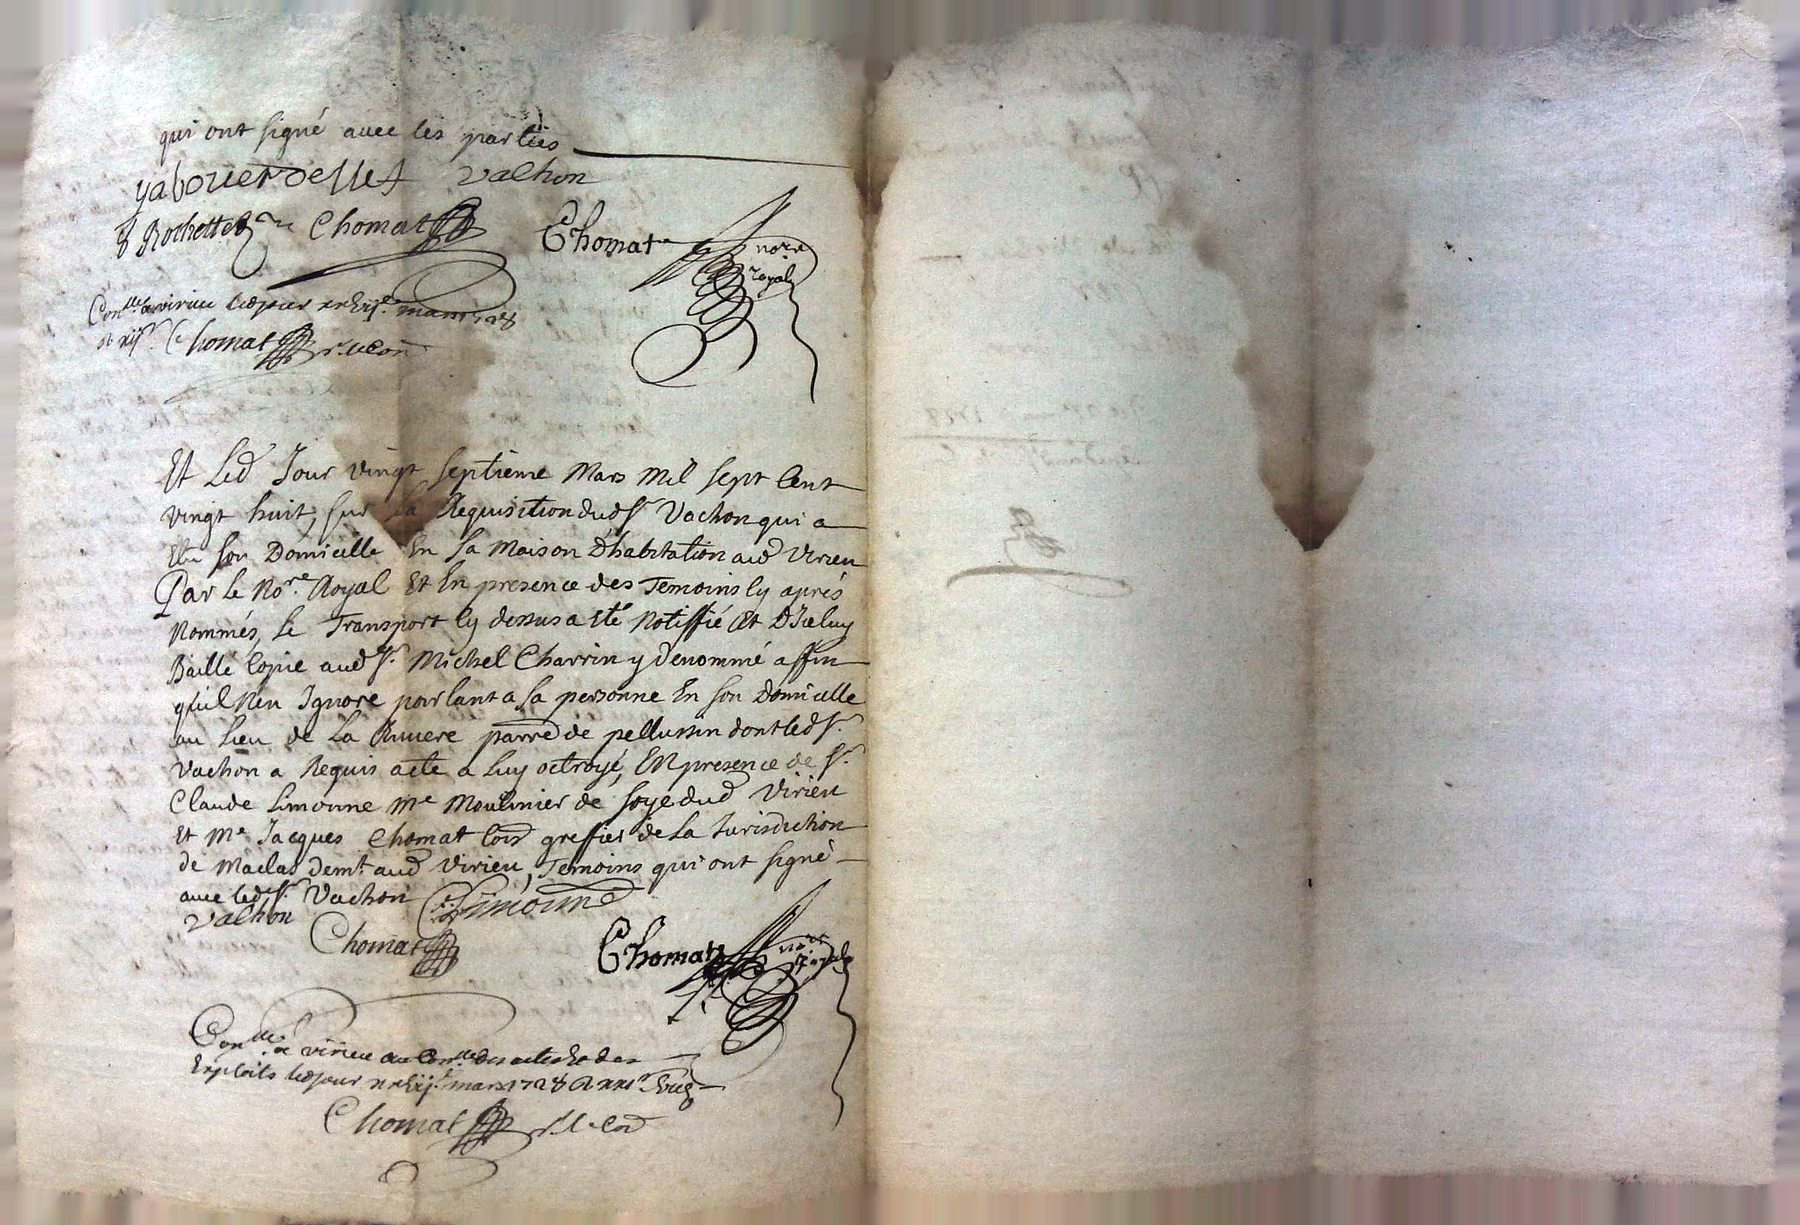 qui ont signé avec les parties
yabouerdellet Vachon
Rochette Chomat Chomat nore royal
Conlle a virieu ledjour xxvij.e mars 1728
R xij s. Chomat
Et Led Jour vingt septieme Mars Mil sept Cent
vingt huit, sur La Requisition dud sr Vachon qui a
Elu son Domicille En sa Maison D'habitation aud Virieu
Par Le Nore Royal Et En presence des Temoins Cy aprés
Nommés, Le Transport Cy dessus a eté Notiffié Et D'Iceluy
Baillé Copie aud sr Michel Charrin y denommé affin
qu'il N'en Ignore parlant a sa personne En son Domicille
au Lieu de La Riviere parre de pellussin dont led sr
Vachon a Requis acte a Luy octroyé, En presence de sr
Claude Limonne Me Moulinier de soye dud Virieu
Et Me Jacques Chomat Coms greffier de La Jurisdiction
de Maclas demt aud Virieu, Temoins qui ont signé
avec led sr Vachon
Vachon C Limonne
Chomat Chomat nore royal
Conlle a virieu au Conlle des actes Et des
Exploits ledjour xxvij.e mars 1728
Chomat